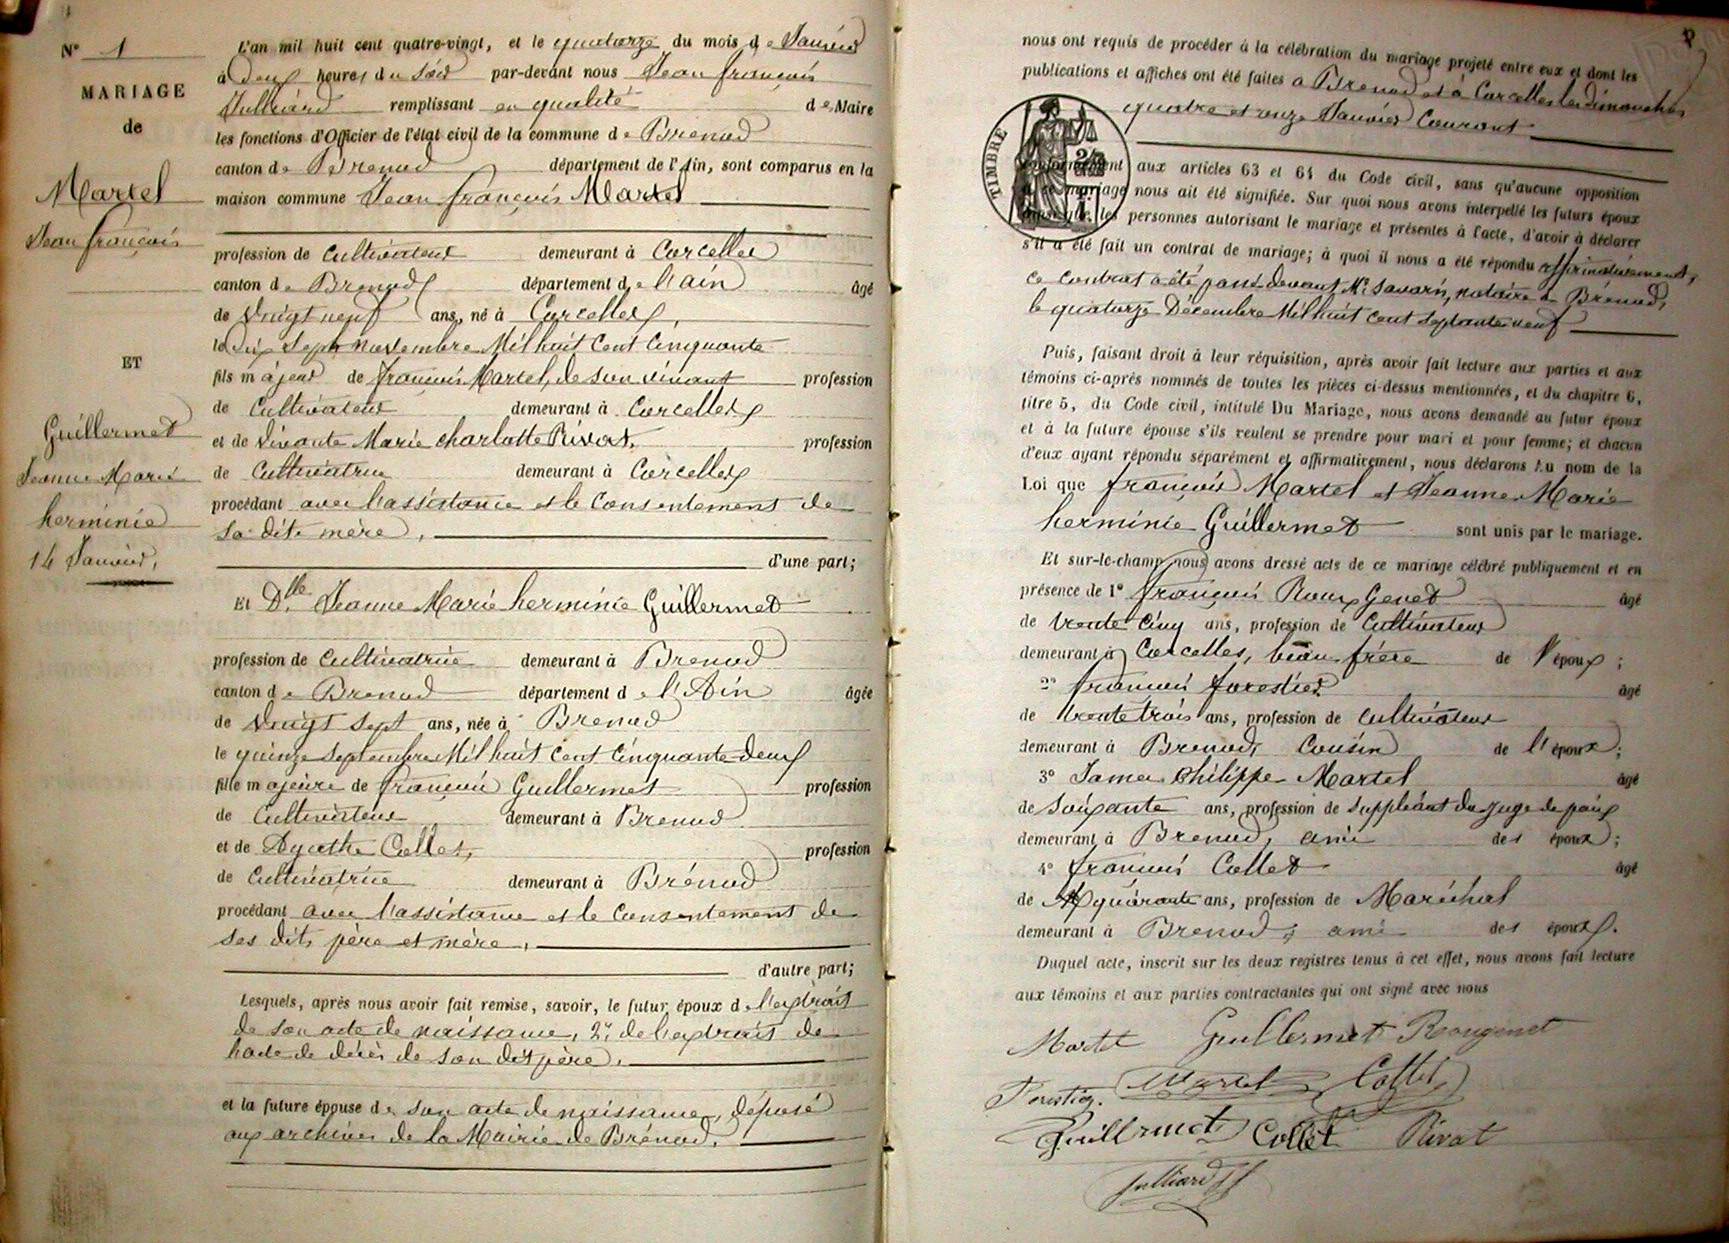 N° 1
MARIAGE
de
Martel
Jean françois
ET
Guillermet
Jeanne Marie
herminie
14 Janvier,
L'an mil huit cent quatre-vingt, et le quatorze du mois de Janvier
à deux heures du soir par-devant nous Jean françois
Julliard remplissant en qualité de Maire
les fonctions d'Officier de l'état civil de la commune de Brenod
canton de Brenod département de l'Ain, sont comparus en la
maison commune Jean françois Martel
profession de Cultivateur demeurant à Corcelles
canton de Brenod département de l'ain âgé
de Vingt neuf ans, né à Corcelles,
le dix sept novembre Mil huit Cent Cinquante
fils majeur de françois Martel, de son vivant profession
de Cultivateur demeurant à Corcelles
et de vivante Marie charlotte Rivat, profession
de Cultivatrice demeurant à Corcelles
procédant avec l'assistance et le Consentement de
sa dite mère,
d'une part;
Et Dlle Jeanne Marie herminie Guillermet
profession de Cultivatrice demeurant à Brenod
canton de Brenod département de l'Ain âgée
de Vingt sept ans, née à Brenod
le quinze septembre Mil huit Cent Cinquante-deux
fille majeure de françois Guillermet profession
de Cultivateur demeurant à Brenod
et de Agathe Collet, profession
de Cultivatrice demeurant à Brénod
procédant avec l'assistance et le Consentement de
ses dits père et mère,
d'autre part;
Lesquels, après nous avoir fait remise, savoir, le futur époux de l'extrait
de son acte de naissance, 2° de l'extrait de
l'acte de décès de son dit père.
et la future épouse de son acte de naissance, déposé
aux archives de la Mairie de Brénod.
nous ont requis de procéder à la célébration du mariage projeté entre eux et dont les
publications et affiches ont été faites à Brenod et à Corcelles les dimanches
quatre et onze Janvier Courant
TIMBRE
conformément aux articles 63 et 64 du Code civil, sans qu'aucune opposition
à ce mariage nous ait été signifiée. Sur quoi nous avons interpellé les futurs époux
ainsi que les personnes autorisant le mariage et présentes à l'acte, d'avoir à déclarer
s'il a été fait un contrat de mariage; à quoi il nous a été répondu affirmativement,
ce Contrat a été passé devant Me Savarin, notaire à Brénod,
le quatorze Décembre Mil huit cent septante neuf
Puis, faisant droit à leur réquisition, après avoir fait lecture aux parties et aux
témoins ci-après nommés de toutes les pièces ci-dessus mentionnées, et du chapitre 6,
titre 5, du Code civil, intitulé Du Mariage, nous avons demandé au futur époux
et à la future épouse s'ils veulent se prendre pour mari et pour femme; et chacun
d'eux ayant répondu séparément et affirmativement, nous déclarons Au nom de la
Loi que françois Martel et Jeanne Marie
herminie Guillermet sont unis par le mariage.
Et sur-le-champ nous avons dressé acte de ce mariage célébré publiquement et en
présence de 1° françois Roux Genet âgé
de trente Cinq ans, profession de Cultivateur
demeurant à Corcelles, beau frère de l'époux;
2° françois forestier âgé
de trente trois ans, profession de Cultivateur
demeurant à Brenod, Cousin de l'époux;
3° James Philippe Martel âgé
de soixante ans, profession de suppléant du Juge de paix
demeurant à Brenod, ami des époux;
4° françois Collet âgé
de quarante ans, profession de Maréchal
demeurant à Brenod; ami des époux.
Duquel acte, inscrit sur les deux registres tenus à cet effet, nous avons fait lecture
aux témoins et aux parties contractantes qui ont signé avec nous
Martel Guillermet Rougenet
Forestier. Martel Collet
Guillermet Collet Rivat
Julliard